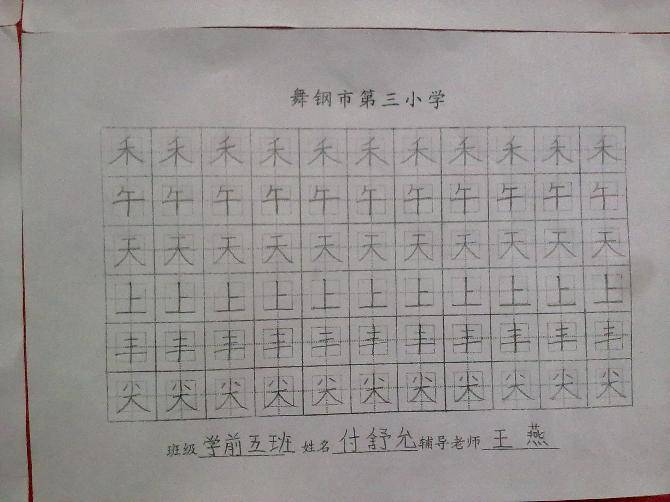 舞钢市第三小学
禾禾禾禾禾禾禾禾禾禾禾
午午午午午午午午午午午
天天天天天天天天天天天
上上上上上上上上上上上
丰丰丰丰丰丰丰丰丰丰丰
尖尖尖尖尖尖尖尖尖尖尖
班级 学前五班 姓名 付舒允 辅导老师 王燕